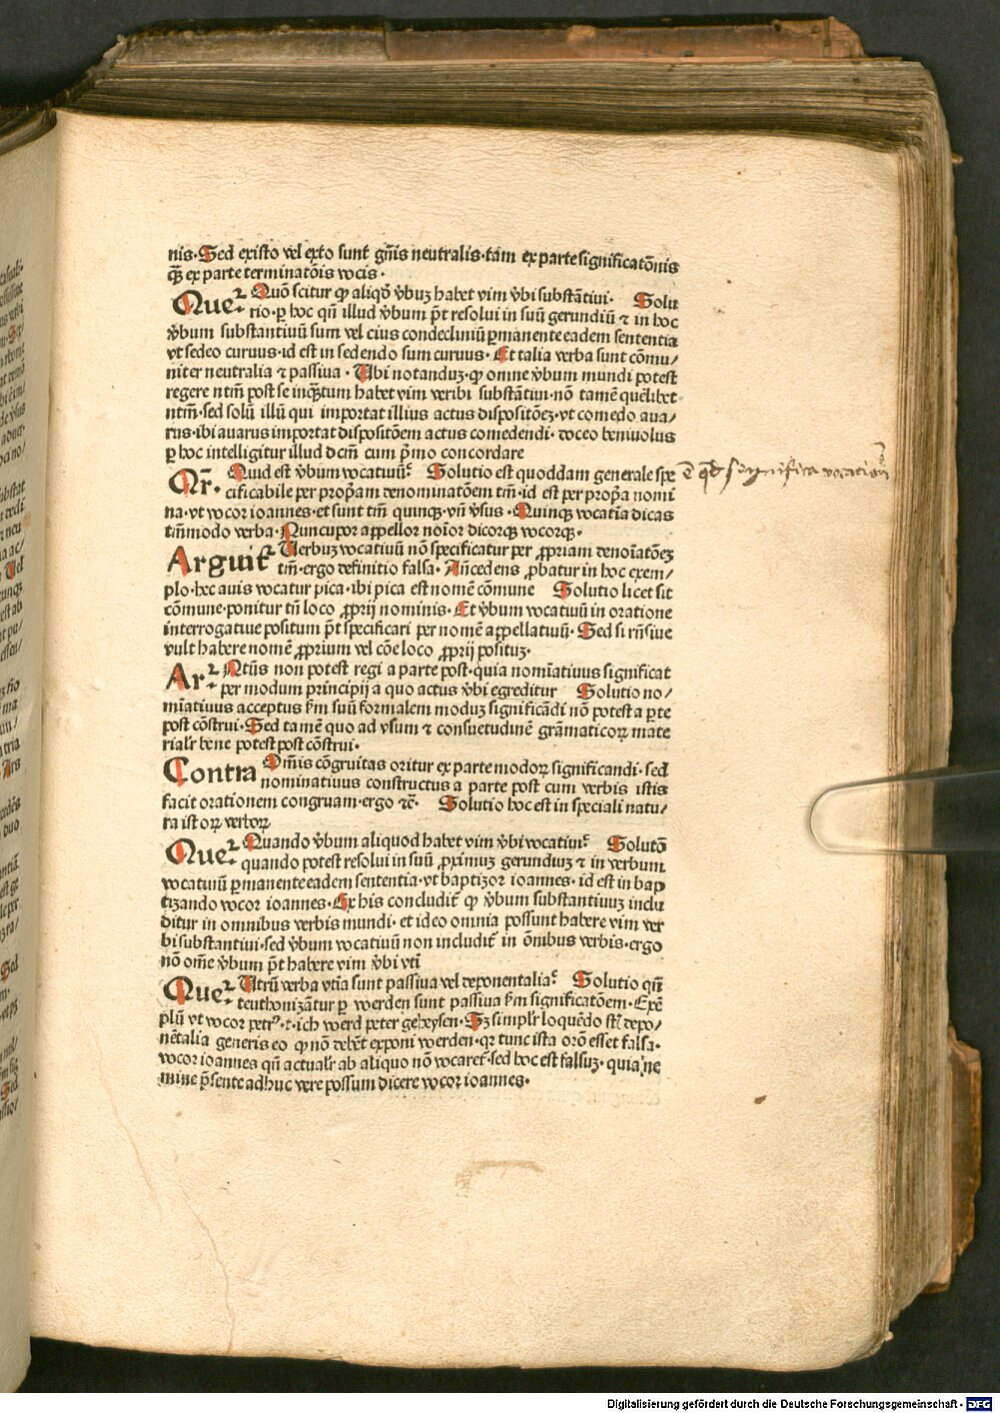 nis·Sed existo vel exto sunt gn̄is neutralis·tam ex parte significatōnis
q̄ꝫ ex parte terminatōis vocis·
Queꝛ̄· Quō scitur ꝙ aliqd̄ v̄buꝫ habet vim v̄bi substātiui· Solu
rio·ꝑ hoc qn̄ illud v̄bum pt̄ resolui in suū gerundiū ⁊ in hoc
v̄bum substantiuū sum vel eius condecliuiū ꝑmanente eadem sententia
vt sedeo curuus·id est in sedendo sum curuus· Et talia verba sunt cōmu/
niter neutralia ⁊ passiua· Ubi notanduꝫ·ꝙ omne v̄bum mundi potest
regere ntm̄ post se inq̄ꝫtum habet vim veribi substātiui·nō tamē quēlibet
ntm̄·sed solū illū qui importat illius actus dispositōeꝫ·vt comedo aua/
rus·ibi auarus importat dispositōem actus comedendi· doceo beniuolus
ꝑ hoc intelligitur illud dcm̄ cum pͥmo concordare
Qr̄· Quid est v̄bum vocatiuū? Solutio est quoddam generale spe
cificabile per propͥam denominatōem tm̄·id est per propͥa nomi
na·vt vocor ioannes·et sunt tm̄ quinqꝫ·vn̄ v̄sus· Quinqꝫ vocatīa dicas
tm̄modo verba· Nuncupor appellor noīor dicorqꝫ vocorqꝫ·
Arguit̄ Uerbuꝫ vocatiuū nō specificatur per ꝓpriam denoīatōeꝫ
tm̄·ergo definitio falsa· An̄cedens ꝓbatur in hoc exem/
plo·hec auis vocatur pica·ibi pica est nomē cōmune Solutio licet sit
cōmune·ponitur tn̄ loco ꝓprij nominis· Et v̄bum vocatiuū in oratione
interrogatiue positum pt̄ specificari per nomē appellatiuū· Sed si rn̄siue
vult habere nomē ꝓprium vel cōe loco ꝓprij posituꝫ·
Arꝛ̄· Ntūs non potest regi a parte post·quia nomīatiuus significat
per modum principij a quo actus v̄bi egreditur Solutio no/
mīatiuus acceptus ẜm suū formalem moduꝫ significādi nō potest a ꝑte
post cōstrui· Sed tamē quo ad vsum ⁊ consuetudinē grāmaticoꝝ mate
rialr̄ bene potest post cōstrui·
Contra Om̄is cōgruitas oritur ex parte modoꝝ significandi·sed
nominatiuus constructus a parte post cum verbis istis
facit orationem congruam·ergo ⁊c̄· Solutio hoc est in speciali natu/
ra istoꝝ verboꝝ
Queꝛ̄· Quando v̄bum aliquod habet vim v̄bi vocatiui? Solutō
quando potest resolui in suū ,pximuꝫ gerundiuꝫ ⁊ in verbum
vocatiuū ꝑmanente eadem sententia·vt baptizor ioannes· id est in bap
tizando vocor ioannes· Ex his concludit̄ ꝙ v̄bum substantiuuꝫ inclu
ditur in omnibus verbis mundi· et ideo omnia possunt habere vim ver
bi substantiui·sed v̄bum vocatiuū non includit̄ in ōnibus verbis·ergo
nō om̄e v̄bum pt̄ habere vim v̄bi vtī
Queꝛ̄· Utrū verba vtīa sunt passiua vel deponentalia? Solutio qn̄
teuthonizātur ꝑ werden sunt passiua ẜm significatōem· Exē
plū vt vocor petrꝰ·i·ich werd peter geheysen· Sꝫ simplr̄ loquēdo st̄ depo/
nētalia generis eo ꝙ nō debēt exponi werden·qꝛ tunc ista orō esset falsa·
vocor ioannes qn̄ actualr̄ ab aliquo nō vocaret̄·sed hoc est falsuꝫ·quia ne
mine p̄sente adhuc vere possum dicere vocor ioannes·
Digitalisierung gefördert durch die Deutsche Forschungsgemeinschaft · DFG